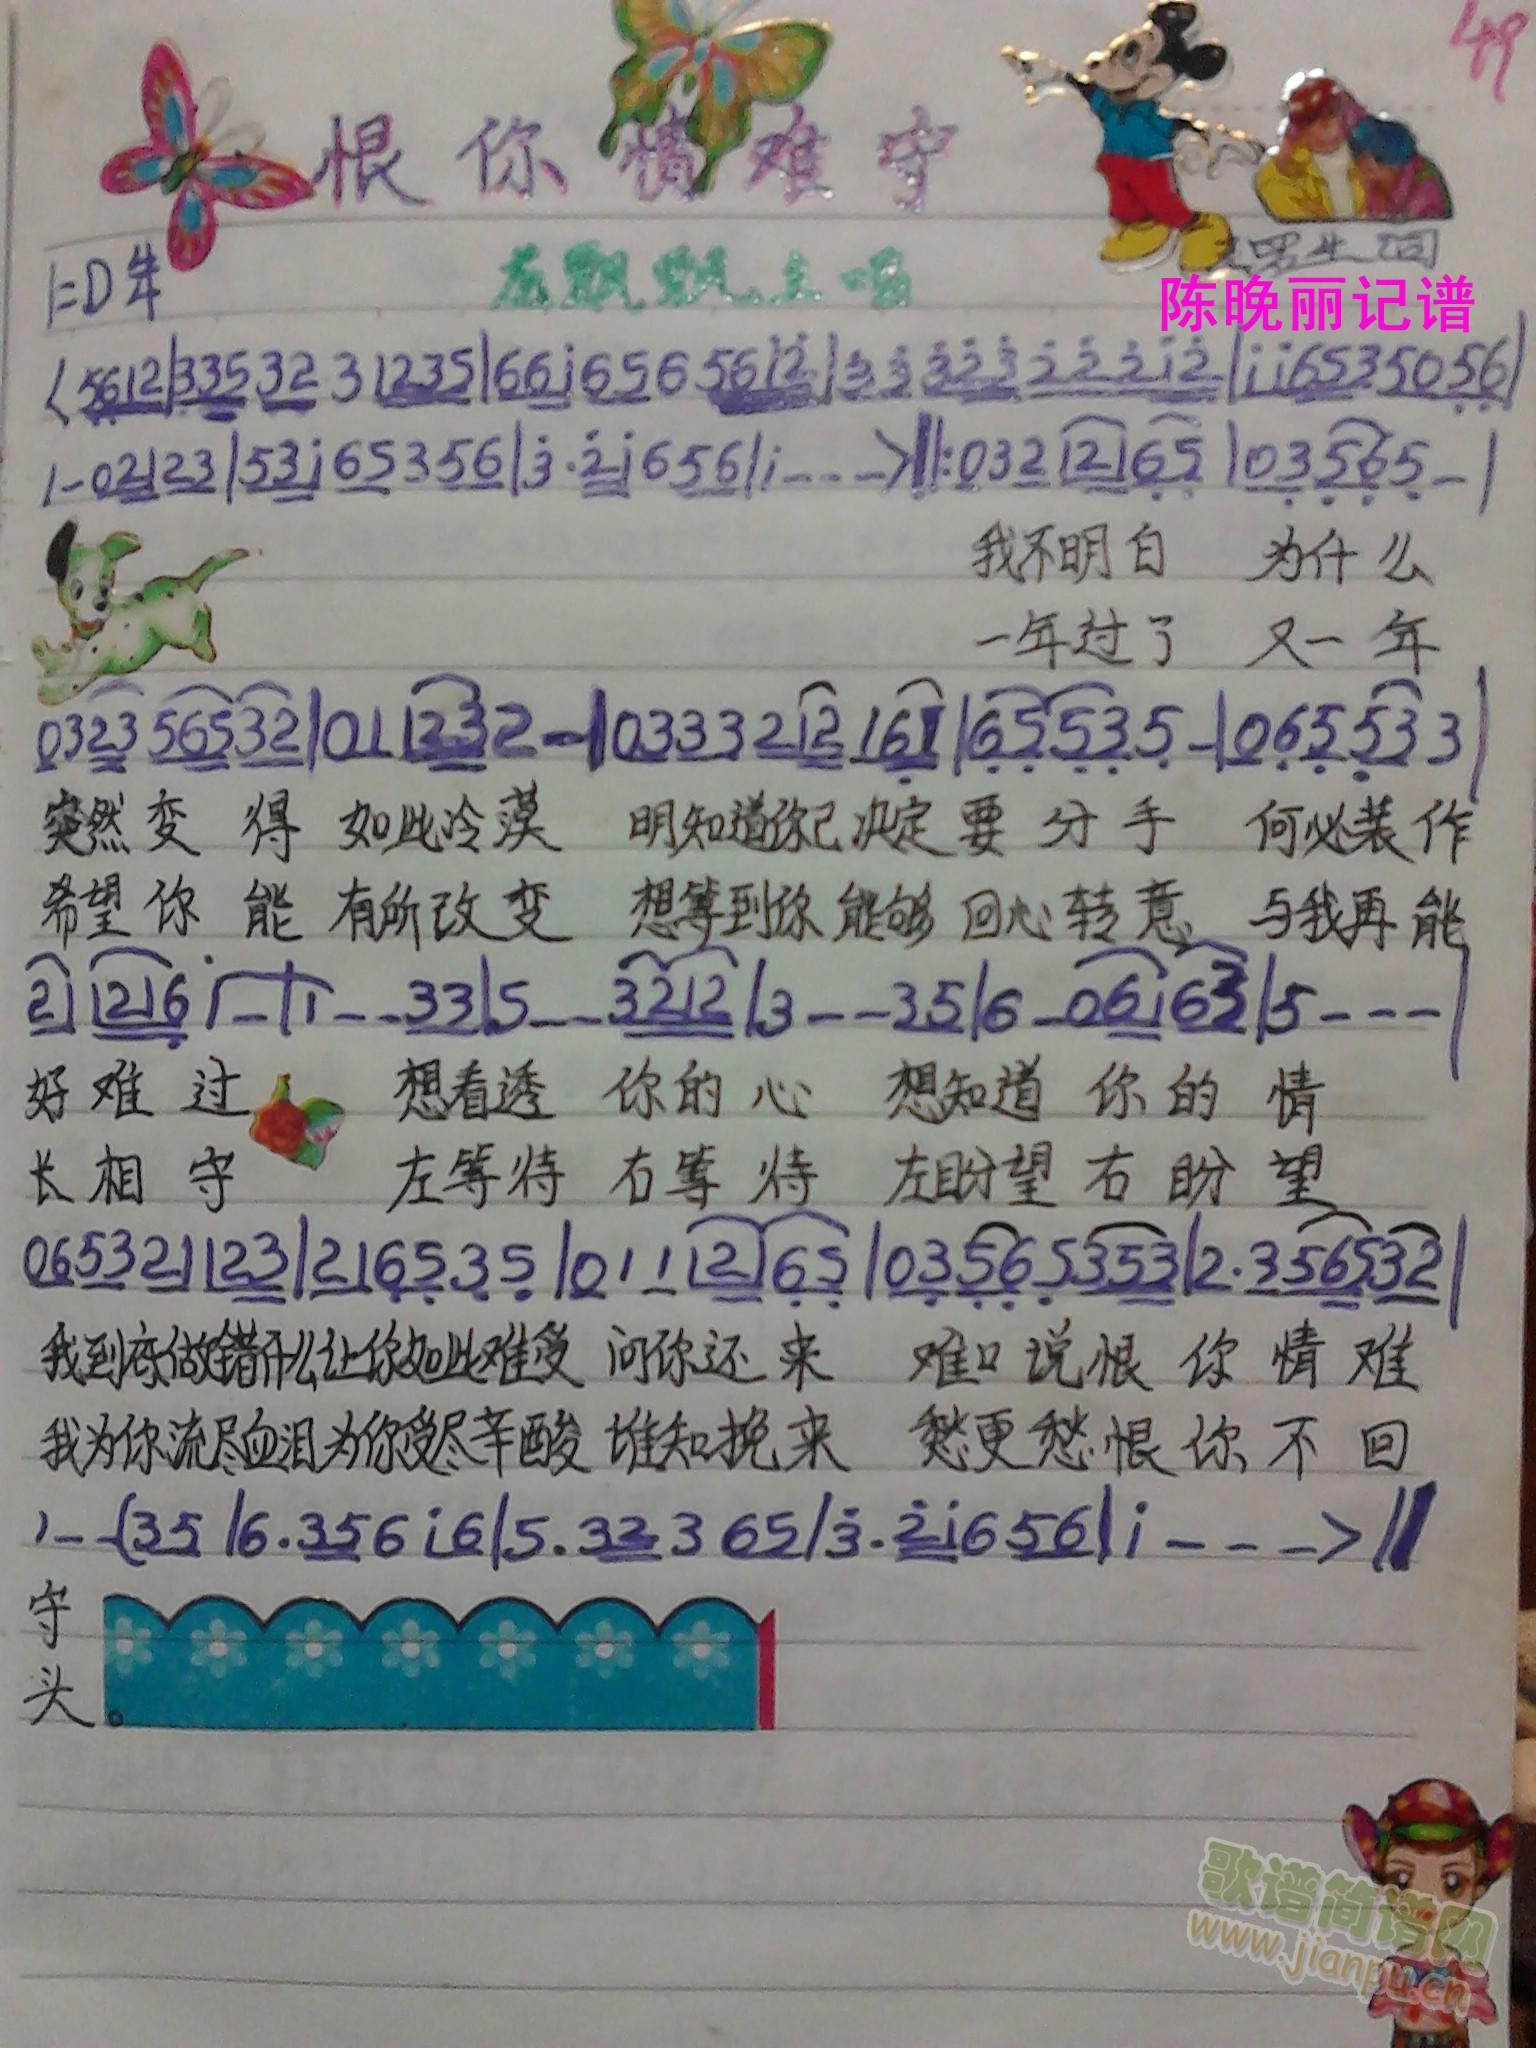 49
恨你情难守
1=D 4/4
飘飘主唱
陈晚丽记谱
<5612|33532 3 1235|66i656 5612|3 3 323 2 2 212|i i653505 6|
1-02123|53i65356|3·2i6 56|i--->‖:03212165|03565-|
我不明白 为什么
一年过了 又一年
0323 56532|011232-|0333212161|65535-|0655 33|
突然变得如此冷漠 明知道你已决定要分手 何必装作
希望你能有所改变 想等到你能够回心转意 与我再能
21 1216 i-|i--33|5--3212|3--35|6-06i63|5---|
好难过 想看透你的心 想知道你的情
长相守 左等待右等待 左盼望右盼望
0653211123|216535|0111 2165|03565353|2·356532|
我到底做错什么让你如此难受 问你还来 难口说恨你情难
我为你流尽血泪为你受尽辛酸 谁知挽来 愁更愁恨你不回
1--(35|6·356i6|5·32365|3·2i656|i--->‖
守
头。
歌谱简谱网
www.jianpu.cn